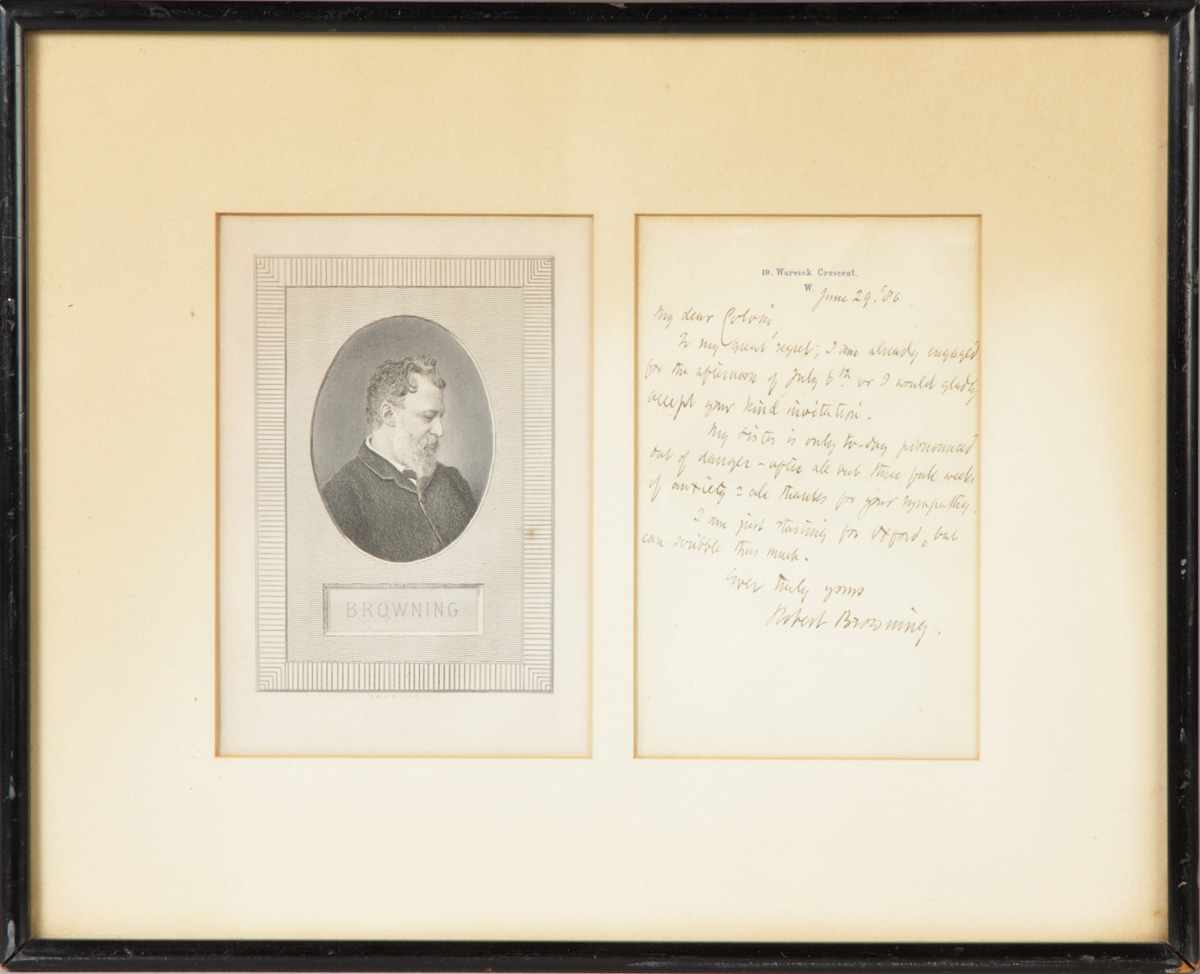 BROWNING
19, Warwick Crescent.
W.
June 29. '86.
My dear Colvin,
To my great regret, I am already engaged
for the afternoon of July 6th or I would gladly
accept your kind invitation.
My sister is only to-day pronounced
out of danger - after all but three full weeks
of anxiety: all thanks for your sympathy.
I am just starting for Oxford, but
can scribble thus much.
Ever truly yours
Robert Browning.